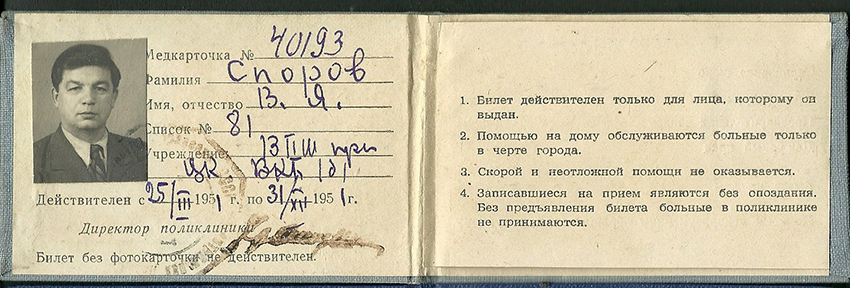 Медкарточка № 40193
Фамилия Споров
Имя, отчество В. Я.
Список № 81
Учреждение ВПШ при
ЦК ВКП(б)
Действителен с 25/III 1951 г., по 31/XII 1951 г.
Директор поликлиники
Билет без фотокарточки не действителен.
1. Билет действителен только для лица, которому он
выдан.
2. Помощью на дому обслуживаются больные только
в черте города.
3. Скорой и неотложной помощи не оказывается.
4. Записавшиеся на прием являются без опоздания.
Без предъявления билета больные в поликлинике
не принимаются.